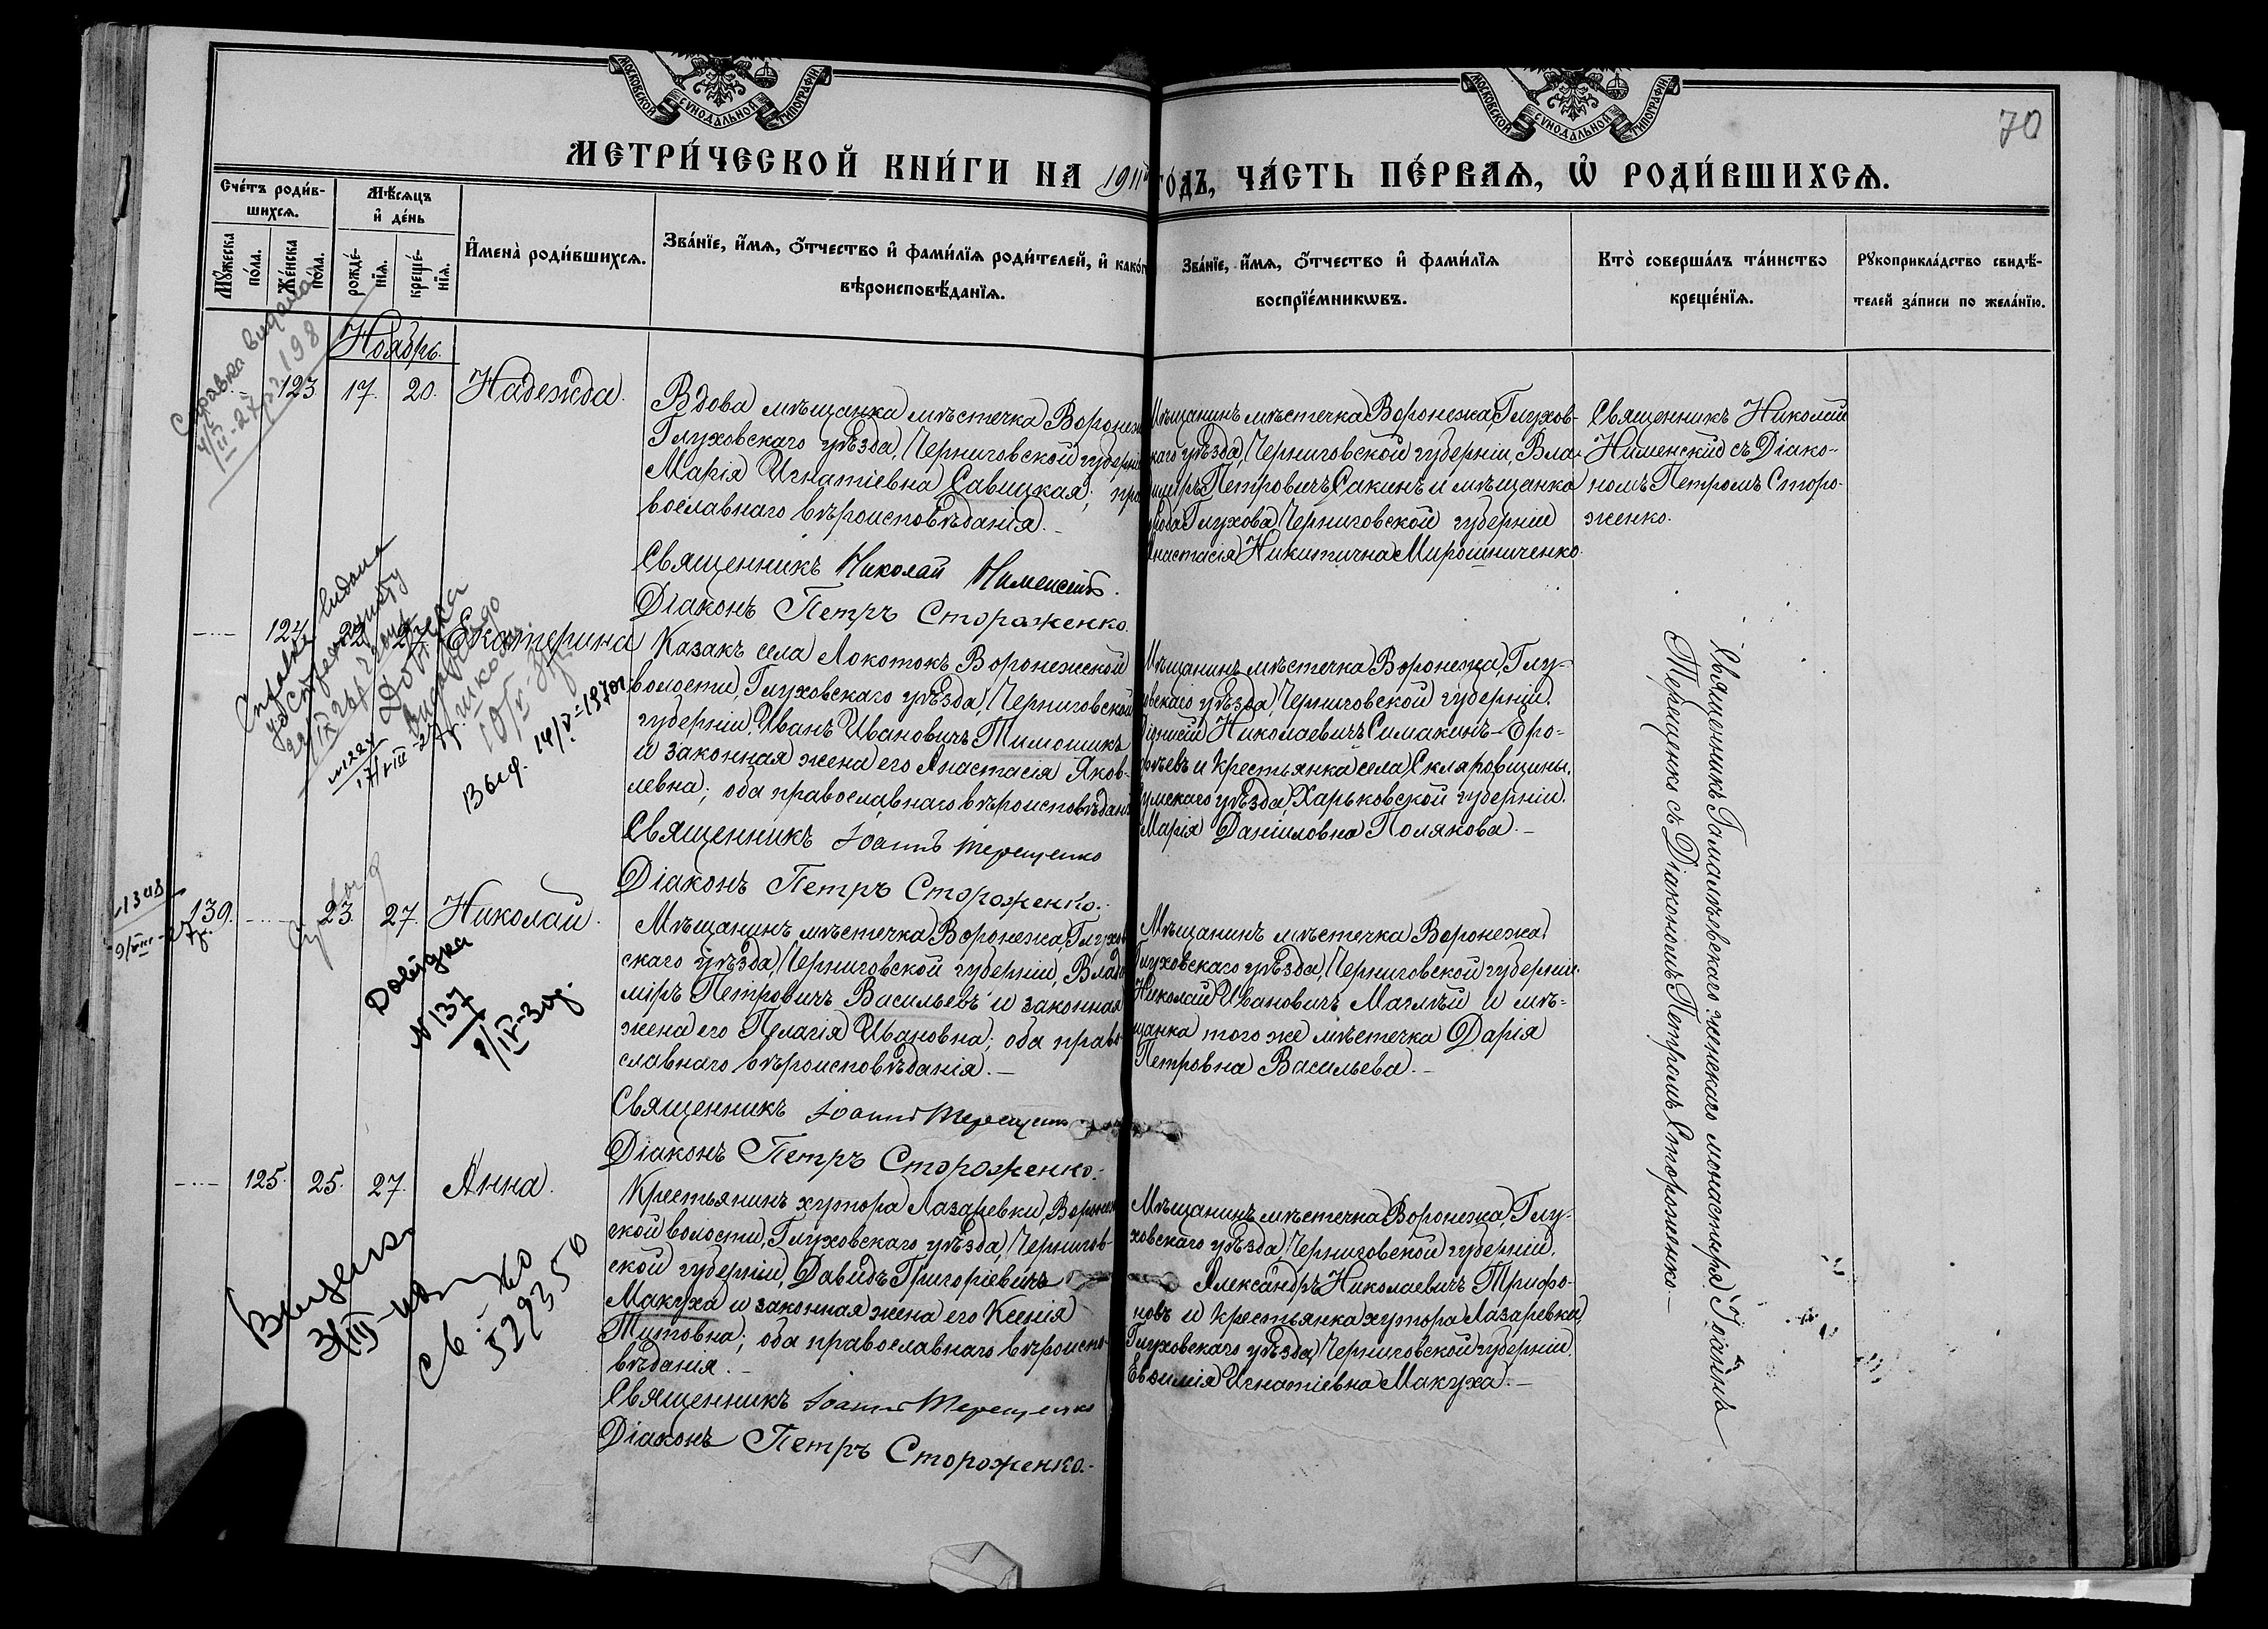 МОСКОВСКОЙ СѴНОДАЛЬНОЙ ТИПОГРАФІИ
МОСКОВСКОЙ СѴНОДАЛЬНОЙ ТИПОГРАФІИ
70
МЕТРИ́ЧЕСКОЙ КНИ́ГИ НА 1911й ГО́ДЪ, ЧА́СТЬ ПЕ́РВАѦ, Ѡ҆ РОДИ́ВШИХСѦ.
Сче́тъ роди́в-
шихсѧ.
Мѣ́сѧцъ
и҆ де́нь
Мꙋжеска по́ла.
Же́нска по́ла.
рожде́-
нїѧ.
креще́-
нїѧ.
И҆мена̀ роди́вшихсѧ.
Зва́нїе, и҆́мѧ, ѻ҆́тчество и҆ фами́лїѧ роди́телей, и҆ како́г
вѣроисповѣ́данїѧ.
Зва́нїе, и҆́мѧ, ѻ҆́тчество и҆ фами́лїѧ
воспрїе́мникѡвъ.
Кто̀ соверша́лъ та́инство
креще́нїѧ.
Рꙋкоприкла́дство свидѣ́-
телей за́писи по жела́нїю.
Ноябрь.
123 17. 20. Надежда.
Вдова мѣщанка мѣстечка Воронеж
Глуховскаго уѣзда, Черниговской губерні
Марія Игнатіевна Савицкая; пра
вославнаго вѣроисповѣданія. –
Священникъ Николай Нименскій.
Діаконъ Петръ Стороженко.
Мѣщанинъ мѣстечка Воронежа, Глухов-
скаго уѣзда, Черниговской губерніи, Вла-
диміръ Петровичъ Сакинъ и мѣщанка
города Глухова, Черниговской губерніи
Анастасія Никитична Мирошниченко.
Священникъ Николай
Нименскій съ Діако-
номъ Петромъ Сторо-
женко.
Справка видана
124. 22 27 Екатерина
Казакъ села Локотокъ Воронежской
волости, Глуховскаго уѣзда, Черниговской
губерніи, Иванъ Ивановичъ Тимошикъ
и законная жена его Анастасія Яков-
левна; оба православнаго вѣроисповѣдані
Священникъ Іоаннъ Терещенко
Діаконъ Петръ Стороженко.
Мѣщанинъ мѣстечка Воронежа, Глу-
ховскаго уѣзда, Черниговской губерніи,
Николаевичъ Симакинъ-Еро-
ѳѣевъ и крестьянка села Скляровщины,
Сумскаго уѣзда, Харьковской губерніи,
Марія Даніиловна Полякова. –
Справка видана
Выд. 14/V-1970г
Священникъ Гамалѣевскаго женскаго монастыря Іоаннъ
Терещенко съ Діакономъ Петромъ Стороженко. –
139. 23. 27. Николай.
Мѣщанинъ мѣстечка Воронежа, Глухов
скаго уѣзда, Черниговской губерніи, Влади
міръ Петровичъ Васильевъ и законная
жена его Пелагія Ивановна; оба право
славнаго вѣроисповѣданія. –
Священникъ Іоаннъ Терещенко
Діаконъ Петръ Стороженко.
Мѣщанинъ мѣстечка Воронежа,
Глуховскаго уѣзда, Черниговской губерніи.
Николай Ивановичъ Маглѣй и мѣ-
щанка того же мѣстечка Дарія
Петровна Васильева. –
Довідка
№ 137
125. 25. 27. Анна.
Крестьянинъ хутора Лазаревки, Воронеж
ской волости, Глуховскаго уѣзда, Чернигов-
ской губерніи, Давидъ Григоріевичъ
Макуха и законная жена его Ксенія
Титовна; оба православнаго вѣроиспо-
вѣданія. –
Священникъ Іоаннъ Терещенко
Діаконъ Петръ Стороженко. –
Мѣщанинъ мѣстечка Воронежа, Глу-
ховскаго уѣзда, Черниговской губерніи,
Александръ Николаевичъ Трифо-
новъ и крестьянка хутора Лазаревка,
Глуховскаго уѣзда, Черниговской губерніи,
Евѳимія Игнатіевна Макуха. –